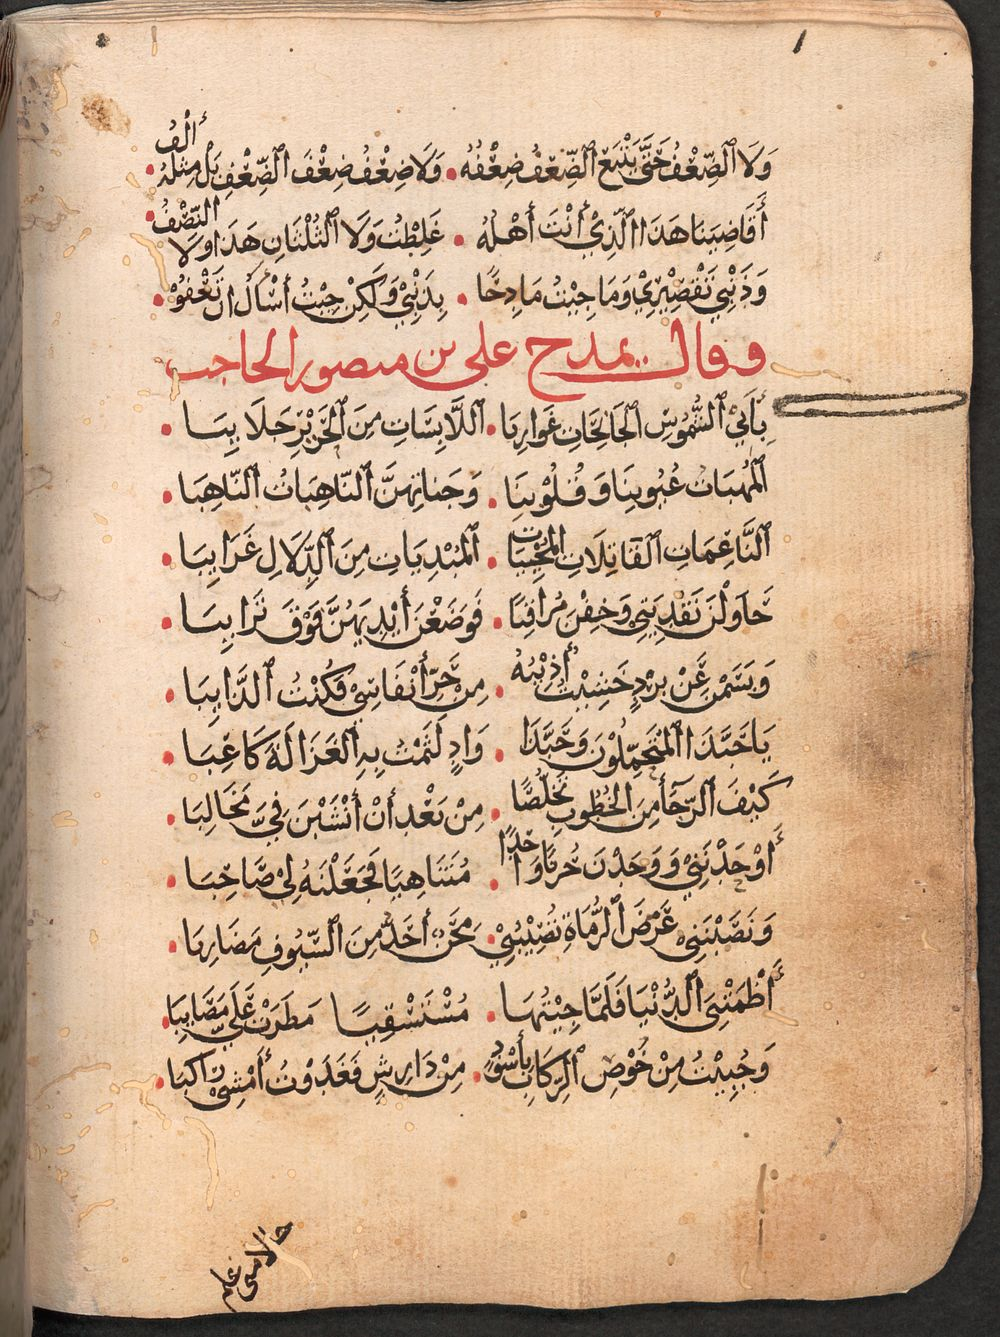 وَلَا الضِّعْفُ حَتَّى يَتْبَعَ الضِّعْفُ ضِعْفُهُ • وَلَا ضِعْفُ ضِعْفِ الضِّعْفِ بَلْ مِثْلُهُ أَلْفُ •
أَقَاضِيَنَا هَذَا الَّذِي أَنْتَ أَهْلُهُ • غَلِطْتُ وَلَا الثُّلْثَانِ هَذَا وَلَا النِّصْفُ •
وَذَنْبِي تَقْصِيْرِي وَمَا جِيْتُ مَادِحًا • بِذَنْبِي وَلَكِنْ جِيْتُ أَسْأَلُ أَنْ تَعْفُوْ •
وقال يمدح علي بن منصور الحاجب
بِأَبِي الشُّمُوسُ الجَانِحَاتُ غَوَارِبَا • اللَّابِسَاتِ مِنَ الحَرِيْرِ جَلَابِبَا •
المُهِبَاتُ عُيُوبِنَا وَقُلُوْبِنَا • وَجَنَاتِهِنَّ النَّاهِبَاتُ النَّاهِبَا •
النَّاعِمَاتِ القَاتِلَاتِ المُحْيِيَاتِ • المُبْدِيَاتِ مِنَ الدِّلَالِ غَرَايِبَا •
حَاوَلْنَ تَفْدِيَتِي وَخِفْنَ مُرَاقِبًا • فَوَضَعْنَ أَيْدِيَهُنَّ فَوْقَ تَرَايِبَا •
وَبَسَمْنَ عَنْ بَرَدٍ خَشِيْتُ أُذِيْبُهُ • مِنْ حَرِّ أَنْفَاسِي فَكُنْتُ الذَّايِبَا •
يَا حَبَّذَا المُتَحَمِّلُوْنَ وَحَبَّذَا • وَادٍ لَثَمْتُ بِهِ الغَزَالَةَ كَاعِبَا •
كَيْفَ الرَّجَأُ مِنَ الخُطُوبِ تَخَلُّصًا • مِنْ بَعْدِ أَنْ أَنْشَبْنَ فِيَّ مَخَالِبَا •
أَوْحَدْنَنِي وَوَجَدْنَ حُزْنًا وَاحِدًا • مُتَنَاهِيًا فَجَعَلْنَهُ لِي صَاحِبَا •
وَنَصَبْنَنِي غَرَضَ الرُّمَاةِ تُصِيْبُنِي • مِحَنٌ أَحَدُّ مِنَ السُّيُوفِ مَضَارِبَا •
أَظْمَتْنِيَ الدُّنْيَا فَلَمَّا جِيْتُهَا • مُسْتَسْقِيًا مَطَرَتْ عَلَيَّ مَصَايِبَا •
وَحُبِيْتُ مِنْ خُوْصِ الرِّكَابِ بِأَسْوَدٍ • مِنْ دَارِشٍ فَغَدَوْتُ أَمْشِي رَاكِبَا •